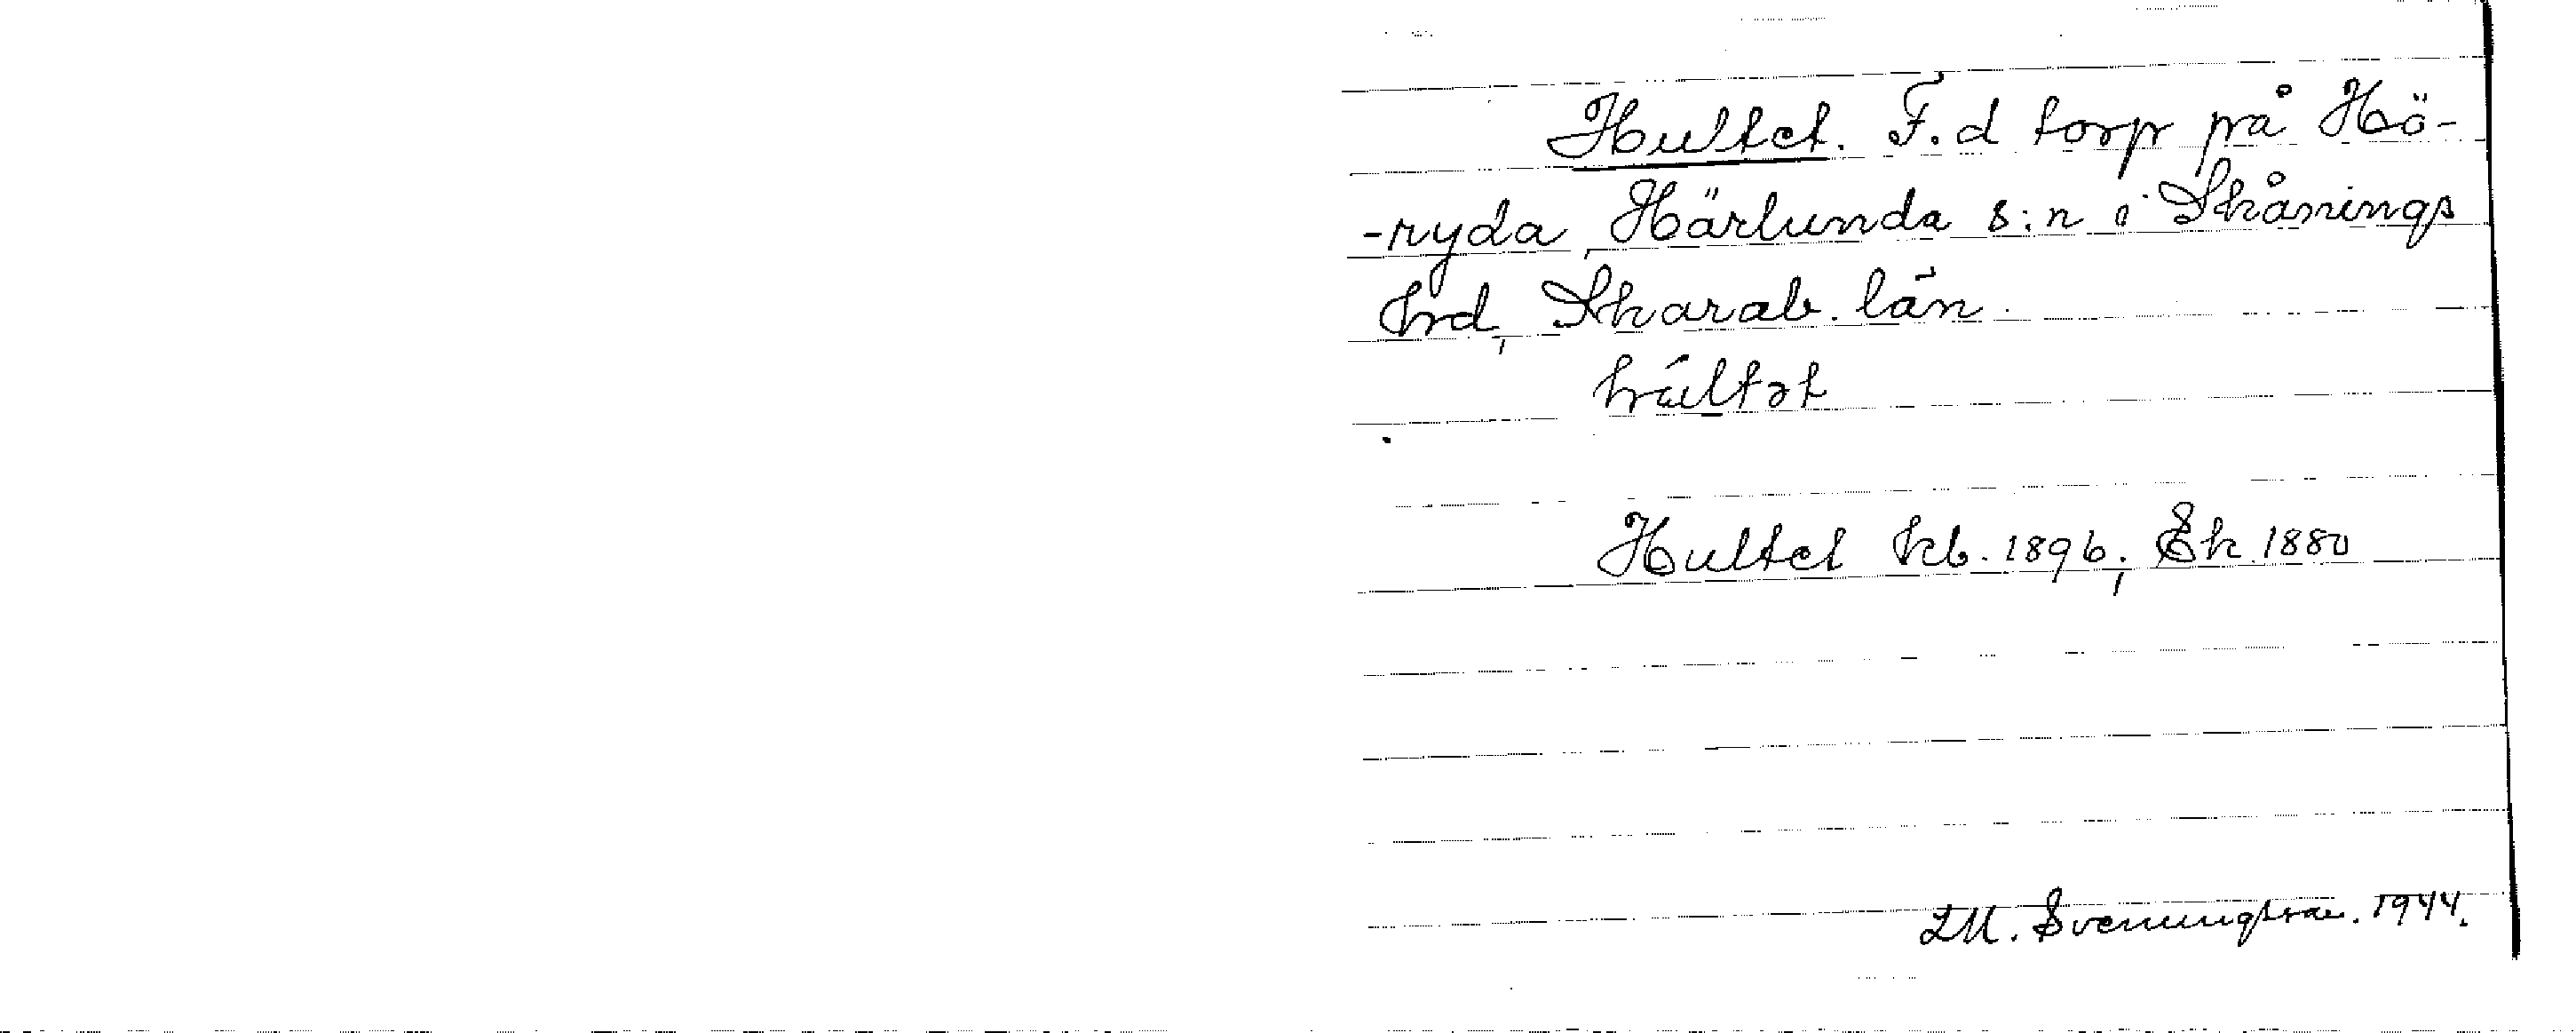 Hultet. F.d torp på Hö-
-ryda, Härlunda s:n i Skånings
hrd, Skarab. län.
húltət
Hultet kb. 1896; Ek. 1880
LM. Svenungsson. 1944.